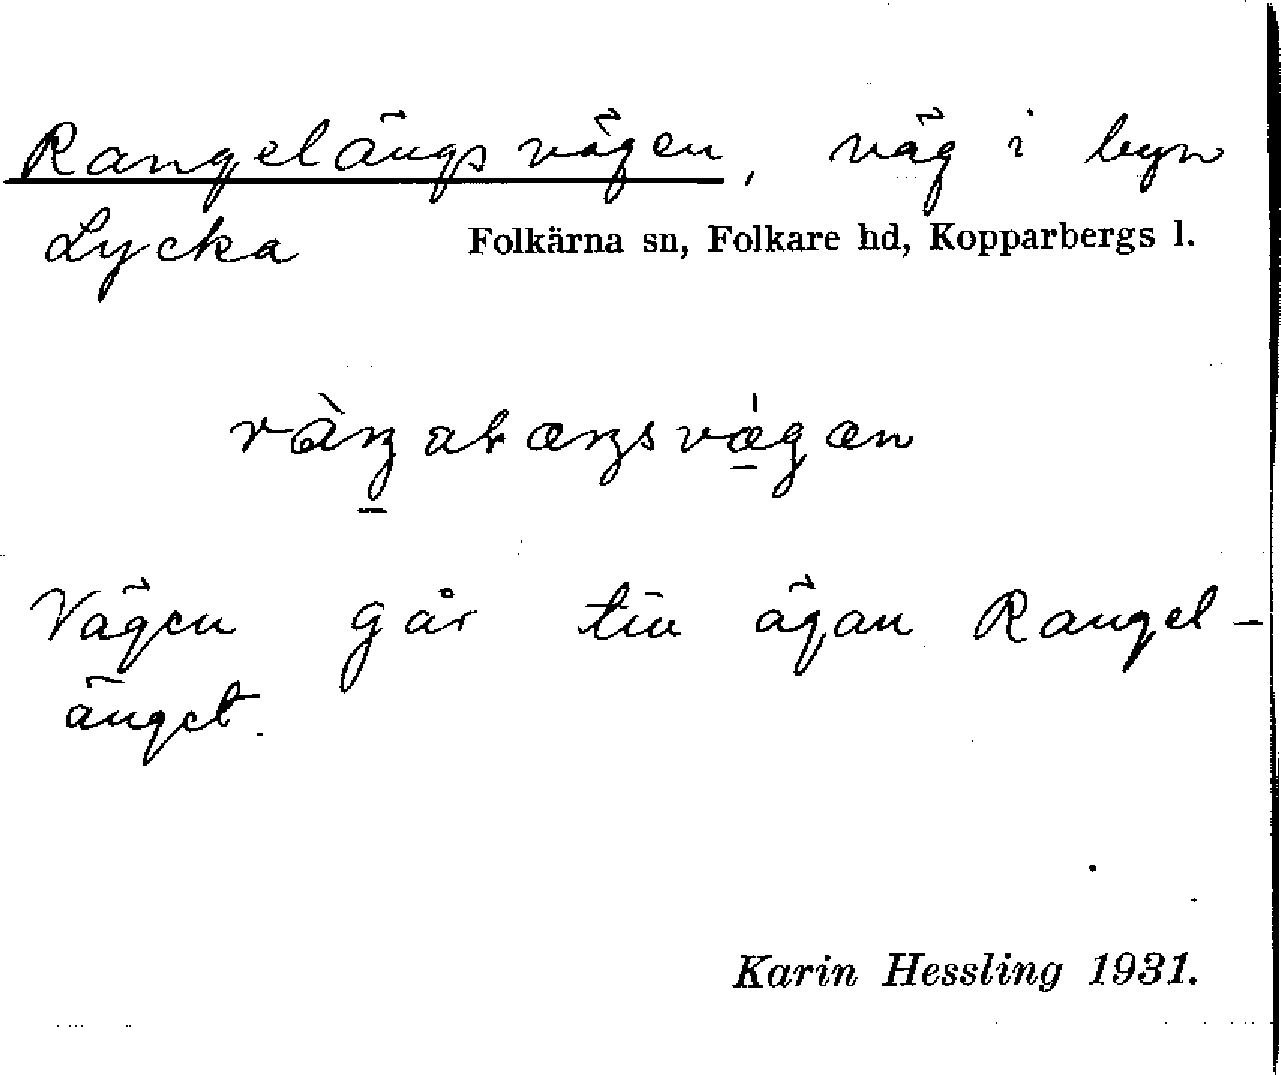 Rangelängsvägen, väg i byn
Lycka Folkärna sn, Folkare hd, Kopparbergs l.
Vägen går till ägan Rangel-
änget.
Karin Hessling 1931.